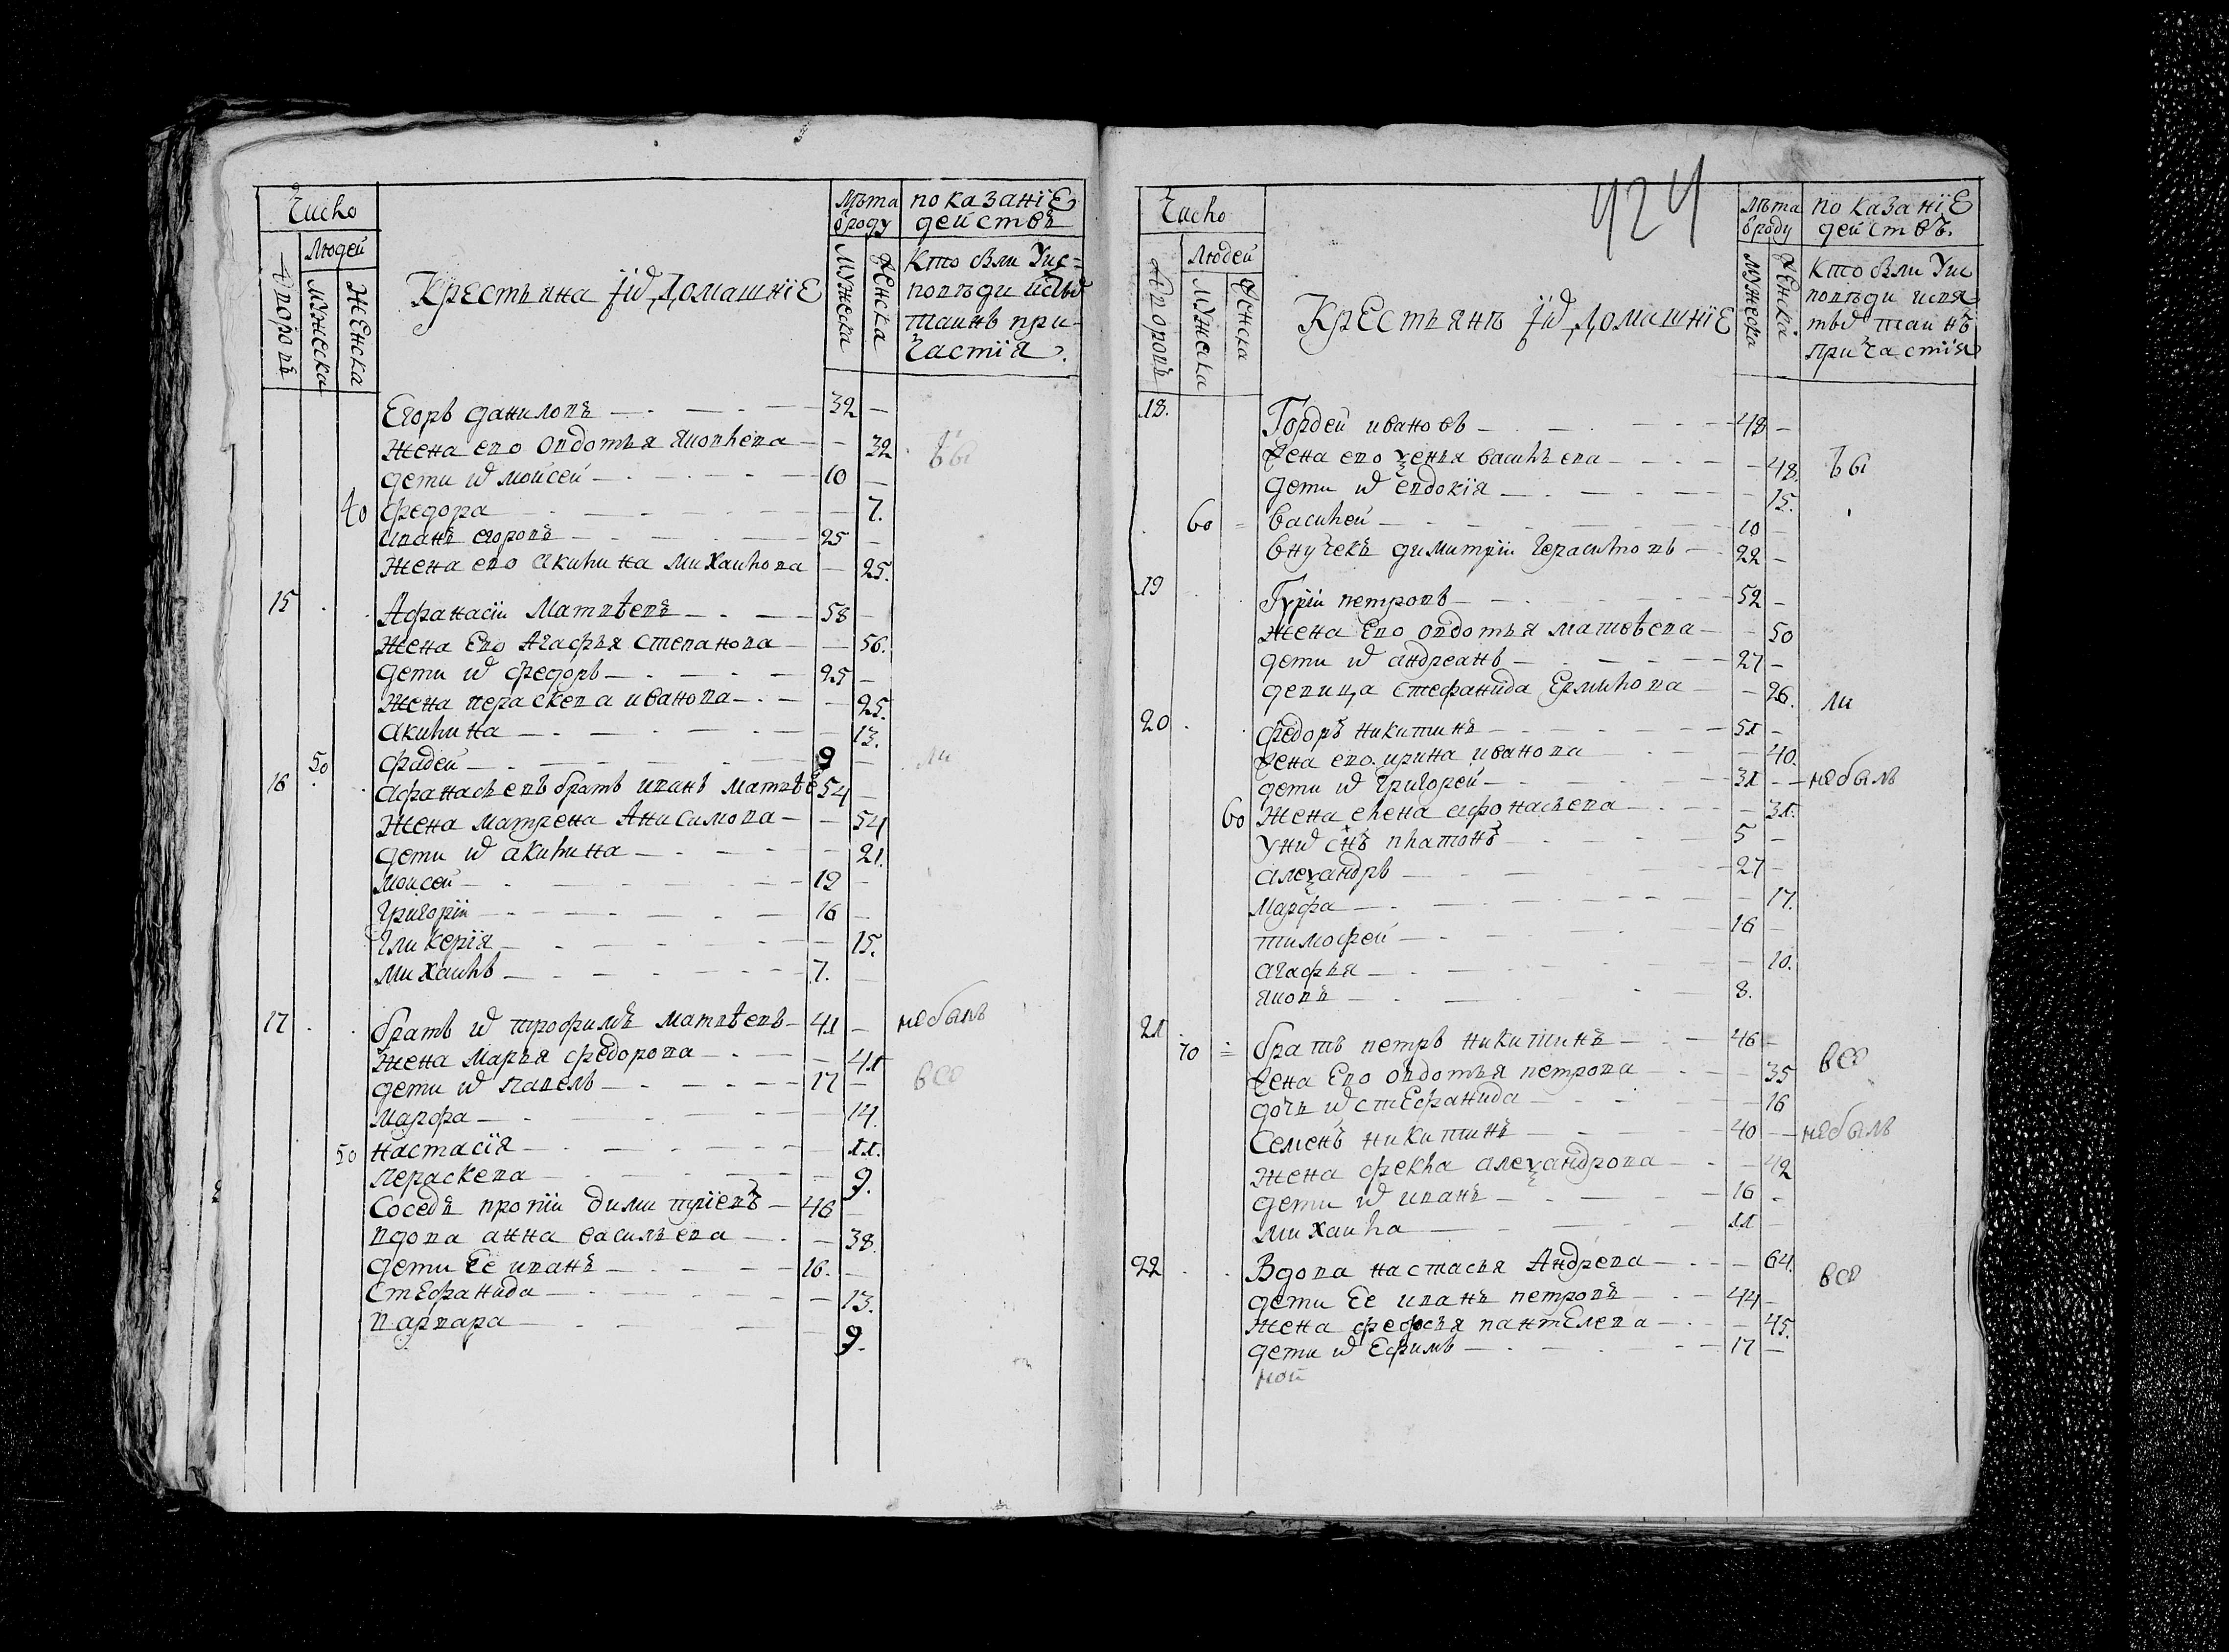 Число
Людей
дворовъ
мужеска
женска
Крестьяна ихъ домашнїе
Лѣта
ѿроду
мужеска
женска
показанїе
действъ
Кто были у ис=
поведи и свѧ
таинъ при-
частїя.
Егоръ даниловъ — 32 —
жена ево овдотья яковлева — — 32 бы
дети их моисей — 10 —
40 федора — — 7.
иванъ егоровъ — 25 —
жена ево акилина михаилова — 25.
15 Афанасїи Матвѣевъ — 58 —
жена Ево Агафья степанова — — 56.
дети их федоръ — 25 —
жена параскева иванова — — 25.
акилина — — 13.
50 фадей — 9 — ли
16 афанасьевъ братъ иванъ матвѣе 54 —
жена матрена Анисимова — — 54
дети их акилина — — 21.
моисей — 19 —
григорїи — 16 —
гликерїя — — 15.
михаилъ — 7. —
17 братъ их трофимъ матвѣевъ — 41 — небылъ
жена марья федорова — — 41
дети их павелъ — 17 — все
марфа — — 14.
50 настасїя — — 11.
параскева — — 9.
Соседъ димитрїевъ — 46 —
вдова анна васильева — — 38.
дети Ее иванъ — 16. —
стефанида — — 13.
варвара — — 9.
424
Число
Людей
дворовъ
мужеска
женска
Крестьянъ ихъ домашнїе
Лѣта
ѿроду
мужеска
женска
показанїе
действъ.
Кто были у ис
поведи и свя
тых таинъ
причастїя
18. Гордей ивановъ — 48 —
жена ево ѯенья василъева — — 48. бы
дети их евдокїя — — 15.
60 = василей — 10 —
внучекъ димитрїи герасимовъ — 22 —
19 Гурїи петровъ — 52 —
жена Ево овдотья матвѣева — — 50
дети их андреанъ — 27 —
девица стефанида Ермилова — — 26. ли
20 федоръ никитинъ — 51 —
жена ево ирина иванова — — 40.
дети их григорей — 31 — — небылъ
60 жена елена афонасьева — — 31.
у них снъ платонъ — 5 —
алеѯандръ — 27 —
марфа — — 17.
тимофей — 16 —
агафья — — 10.
яковъ — 8.
21 70 = братъ петръ никитинъ — 46 —
жена Ево овдотья петрова — — 35 все
дочь их стефанида — — 16
Семенъ никитинъ — 40 — — небылъ
жена фекла алеѯандрова — — 42
дети их иванъ — 16 —
михаила — 11 —
22 Вдова настасья Андрева — — 64. все
дети Ее иванъ петровъ — 44 —
жена федосья пантелева — — 45.
дети их Ефимъ — 17 —